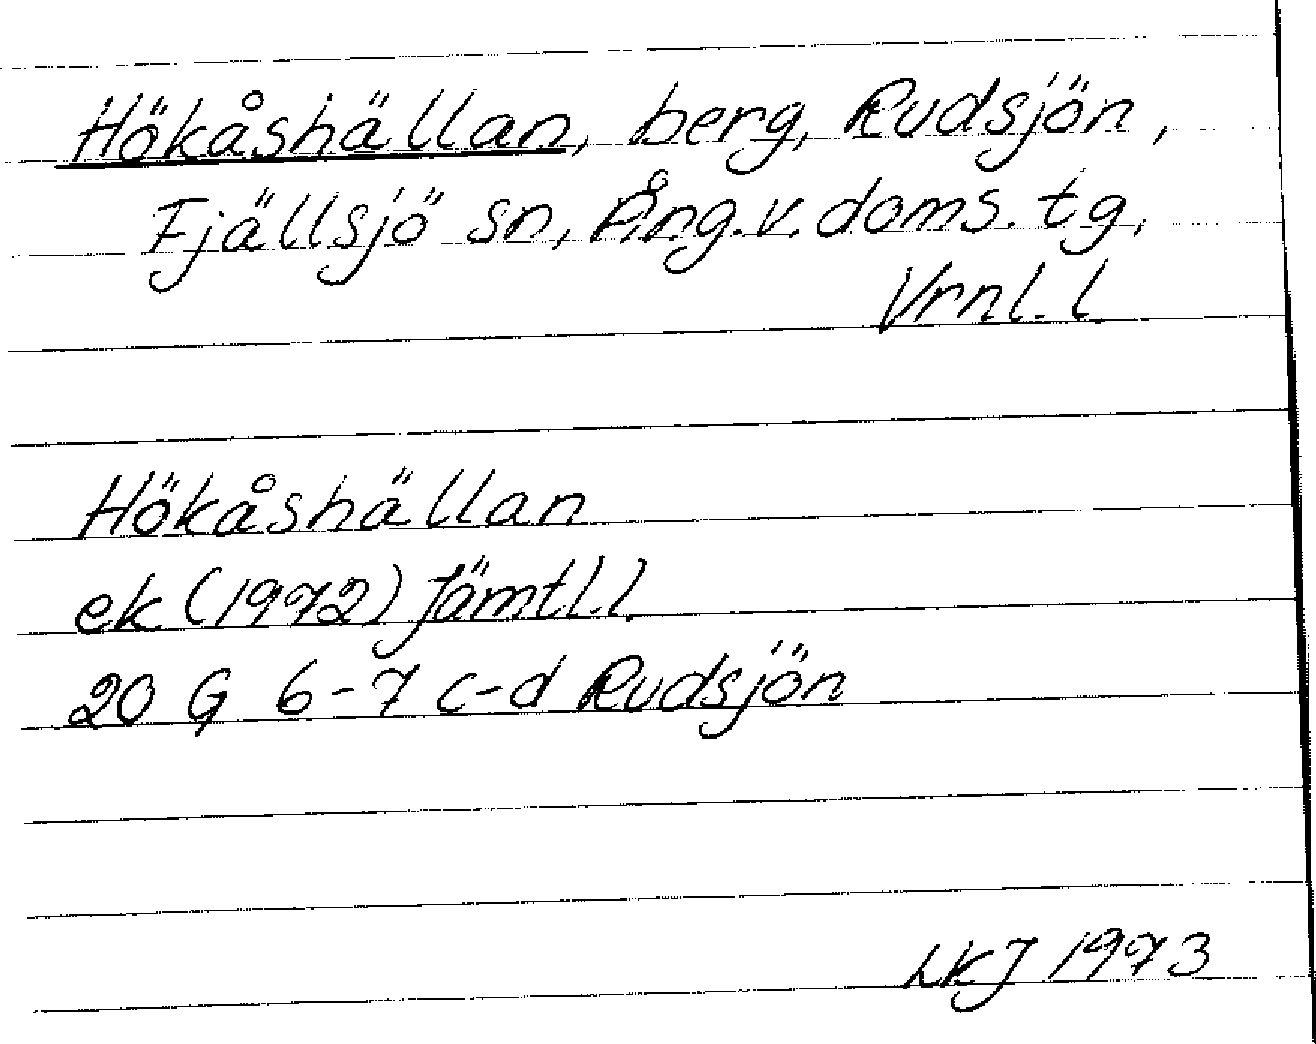 Hökåshällan, berg, Rudsjön,
Fjällsjö sn, Ång.v.doms.tg,
Vrnl.l
Hökåshällan
ek (1972) Jämtl.l.
20 G 6-7 c-d Rudsjön
LKJ 1973